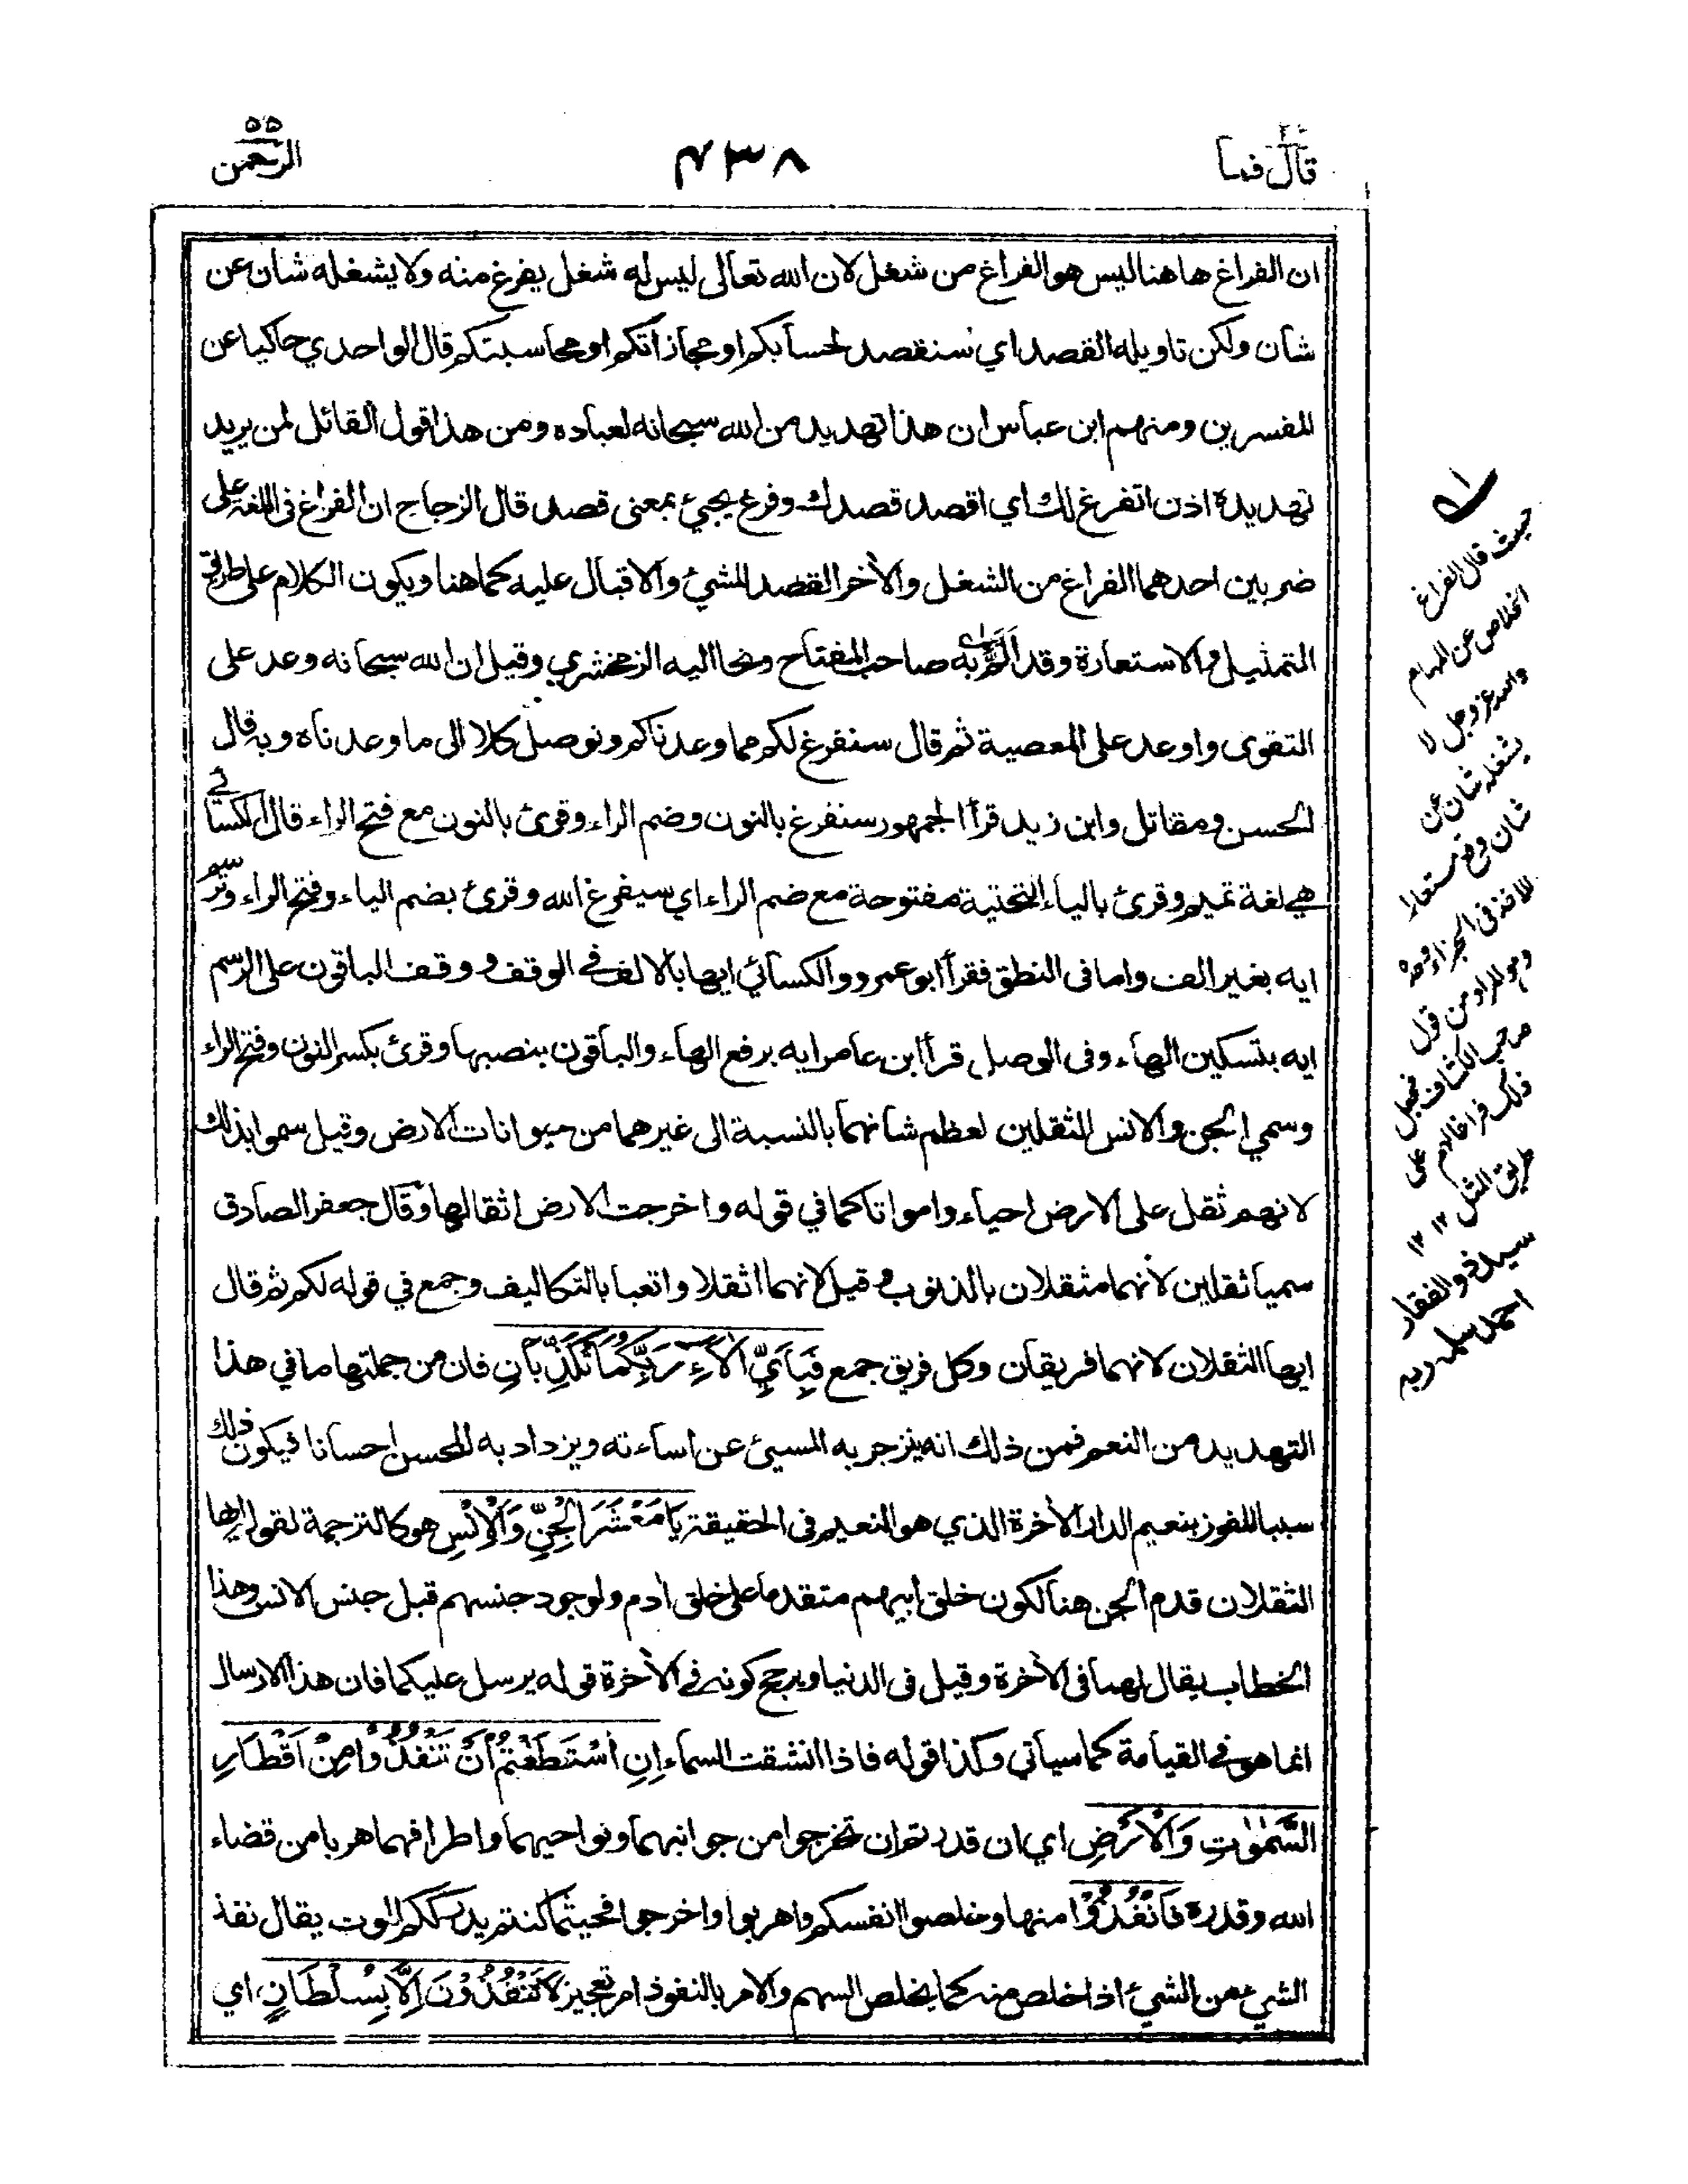 قال فما
٤٣٨
٥٥
الرحمن
ان الفراغ هاهنا ليس هو الفراغ من شغل لان الله تعالى ليس له شغل يفرغ منه ولا يشغله شان عن
شان ولكن تاويله القصد اي سنقصد لحسابكم او مجازاتكم او محاسبتكم قال الواحدي حاكيا عن
المفسرين ومنهم ابن عباس ان هذا تهديد من الله سبحانه لعباده ومن هذا قول القائل لمن يريد
تهديدة اذن اتفرغ لك اي اقصد قصدك وفرغ يجيئ بمعنى قصد قال الزجاج ان الفراغ فى اللغة على
ضربين احدهما الفراغ من الشغل والأخر القصد للشيئ والاقبال عليه كما هنا ويكون الكلام على طريق
التمثيل والاستعارة وقد الم به صاحب المفتاح ونحا اليه الزمخشري وقيل ان الله سبحانه وعد على
التقوى واوعد على المعصية ثم قال سنفرغ لكم مما وعدناكم ونوصل كلا الى ما وعدناه وبه قال
الحسن ومقاتل وابن زيد قرأ الجمهور سنفرغ بالنون وضم الراء وقرئ بالنون مع فتح الراء قال الكسائي
هي لغة تميم وقرئ بالياء التحتية مفتوحة مع ضم الراء اي سيفرغ الله وقرئ بضم الياء وفتح الراء وترسم
ايه بغير الف واما فى النطق فقرأ ابو عمرو والكسائي ايها بالالف في الوقف و وقف الباقون على الرسم
ايه بتسكين الهاء وفى الوصل قرأ ابن عامر ايه برفع الهاء والباقون بنصبها وقرئ بكسر النون وفتح الراء
وسمي الجن والانس الثقلين لعظم شانهما بالنسبة الى غيرهما من حيوانات الارض وقيل سموا بذلك
لانهم ثقل على الارض احياء وامواتا كما في قوله واخرجت الارض اثقالها وقال جعفر الصادق
سميا ثقلين لانهما مثقلان بالذنوب وقيل لانهما اثقلا واتعبا بالتكاليف وجمع في قوله لكم ثم قال
ايها الثقلان لانهما فريقان وكل فريق جمع فَبِاَيِّ اٰلَاۤءِ رَبِّكُمَا تُكَذِّبَانِ فان من جملتها ما في هذا
التهديد من النعم فمن ذلك انه ينزجر به المسيئ عن اساءته ويزداد به المحسن احسانا فيكون ذلك
سببا للفوز بنعيم الدار الأخرة الذي هو النعيم فى الحقيقة يَا مَعْشَرَ الْجِنِّ وَالْاِنْسِ هو كالترجمة لقوله ايها
الثقلان قدم الجن هنا لكون خلق ابيهم متقدما على خلق أدم ولوجود جنسهم قبل جنس الانس وهذا
الخطاب يقال لهما فى الأخرة وقيل فى الدنيا ويرجح كونه في الأخرة قوله يرسل عليكما فان هذا الارسال
انما هو في القيامة كما سيأتي وكذا قوله فاذا انشقت السماء اِنِ اسْتَطَعْتُمْ اَنْ تَنْفُذُوْا مِنْ اَقْطَارِ
السَّمٰوٰتِ وَالْاَرْضِ اي ان قدرتم ان تخرجوا من جوانبهما ونواحيهما واطرافهما هربا من قضاء
الله وقدرة فَانْفُذُوْا منها وخلصوا انفسكم واهربوا واخرجوا فحيثما كنتم يدرككم الموت يقال نفذ
الشيئ من الشيئ اذا خلص منه كما يخلص السهم والامر بالنفوذ امر تعجيز لَا تَنْفُذُوْنَ اِلَّا بِسُلْطَانٍ اي
حيث قال الفراغ
الخلاص عن المهام
والله عز وجل لا
يشغله شان عن
شان وقع مستعارا
للاخذ فى الجزاء وحده
وهو المراد من قول
صاحب الكشاف فجعل
ذلك فراغا لهم على
طريق المثل ١٢ ١٢
سيد ذو الفقار
احمد سلمه ربه